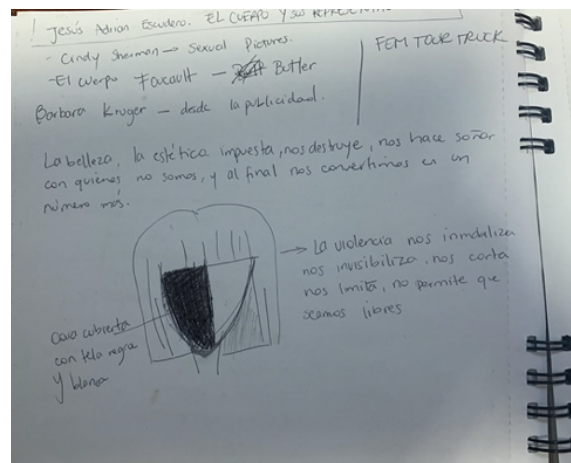 Jesús Adrian Escudero. EL CUERPO Y SUS
- Cindy Sherman → Sexual Pictures.
- El cuerpo Foucault — Butler
Barbara Kruger — desde la publicidad.
FEM TOUR TRUCK
La belleza, la estética impuesta, nos destruye, nos hace soñar
con quienes no somos, y al final nos convertimos en un
número más.
→ La violencia nos inmoliza
nos invisibiliza, nos corta
nos limita, no permite que
seamos libres
Cara cubierta
con tela negra
y blanca